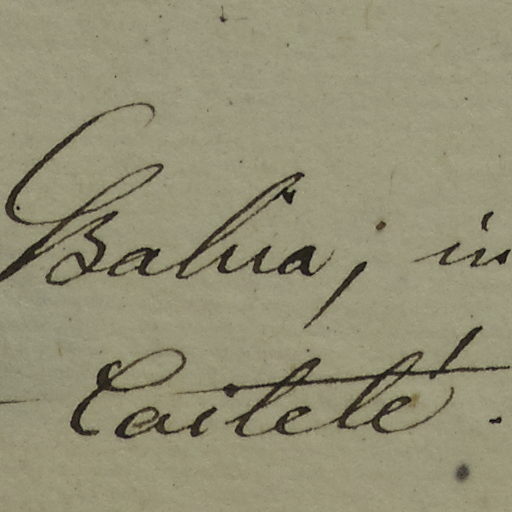 Bahia; in
Caiteté.